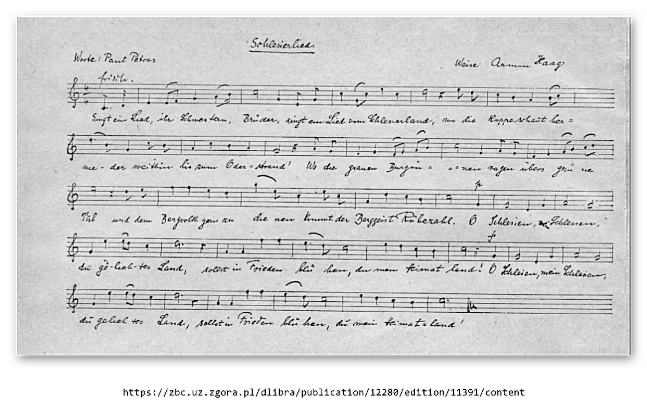 Schlesierlied.
Worte: Paul Petras Weise Armin Haag
frisch.
Singt ein Lied, ihr Schwestern, Brüder, singt ein Lied vom Schlesierland, wo die Koppe schaut her=
nie-der weithin bis zum Oder-strand! Wo die grauen Burgru= =inen ragen übers grü ne
Tal und dem Bergvolk gern zu die nen kommt der Berggeist Rübezahl. O Schlesien, Schlesien,
du ge-lieb-tes Land, sollst in Frieden blü hen, du mein Heimat land! O Schlesien, mein Schlesien,
du gelieb tes Land, sollst in Frieden blü hen, du mein Heimat=land!
https://zbc.uz.zgora.pl/dlibra/publication/12280/edition/11391/content